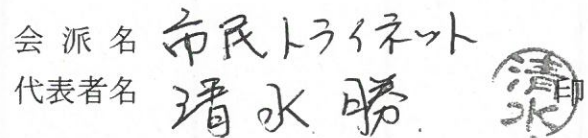 会派名 市民トライネット
代表者名 清水勝 清水 印